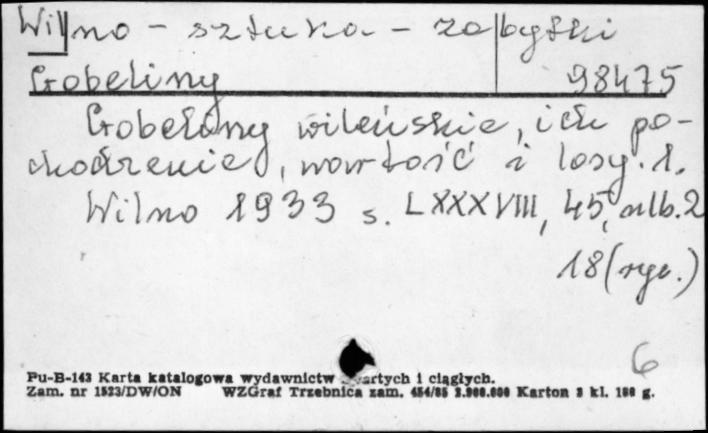 Wilno - sztuka - zabytki
Gobeliny 98475
Gobeliny wileńskie, ich po-
chodzenie, wartość i losy. 1.
Wilno 1933 s. LXXXVIII, 45, nlb. 2
18 (ryc.)
6
Pu-B-143 Karta katalogowa wydawnictw zwartych i ciągłych.
Zam. nr 1523/DW/ON WZGraf Trzebnica zam. 454/85 2.000.000 Karton 3 kl. 180 g.